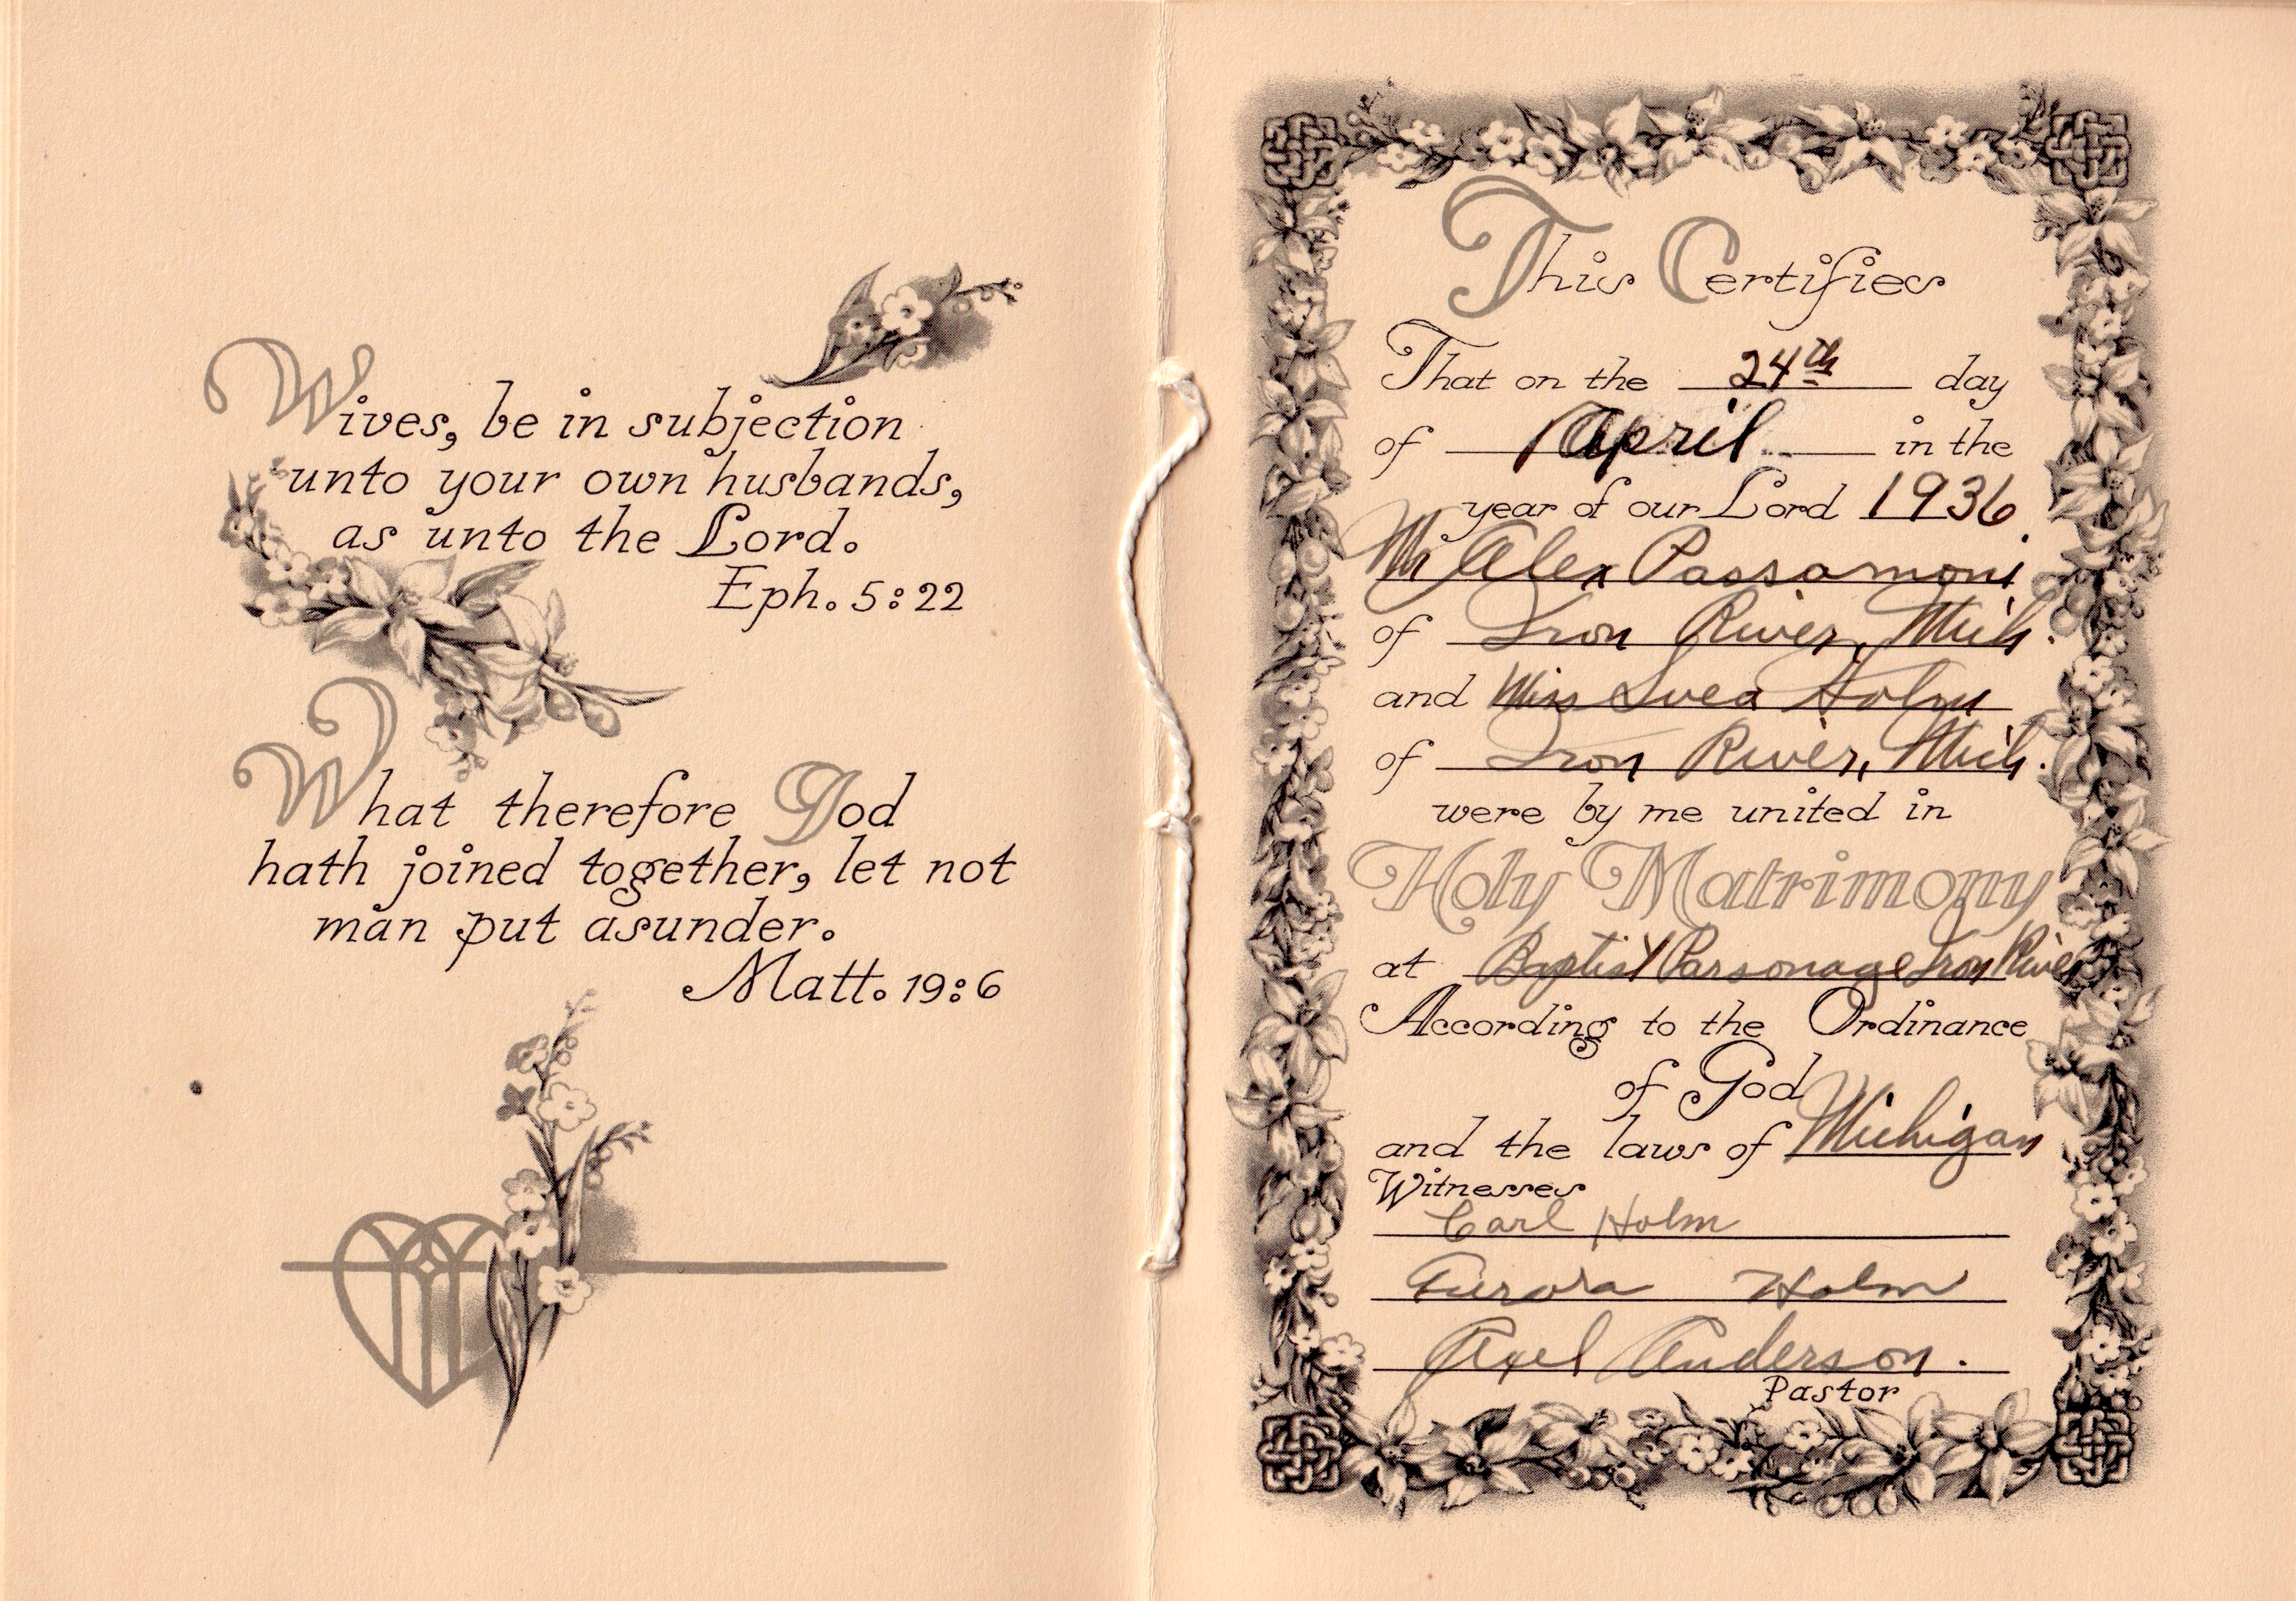 Wives, be in subjection
unto your own husbands,
as unto the Lord.
Eph. 5:22
What therefore God
hath joined together, let not
man put asunder.
Matt. 19:6
This Certifies
That on the 24th day
of April in the
year of our Lord 1936
Mr Alex Passamoni
of Iron River, Mich.
and Miss Svea Holm
of Iron River, Mich.
were by me united in
Holy Matrimony
at Baptist Parsonage Iron River
According to the Ordinance
of God
and the laws of Michigan
Witnesses
Carl Holm
Aurora Holm
Axel Anderson.
Pastor